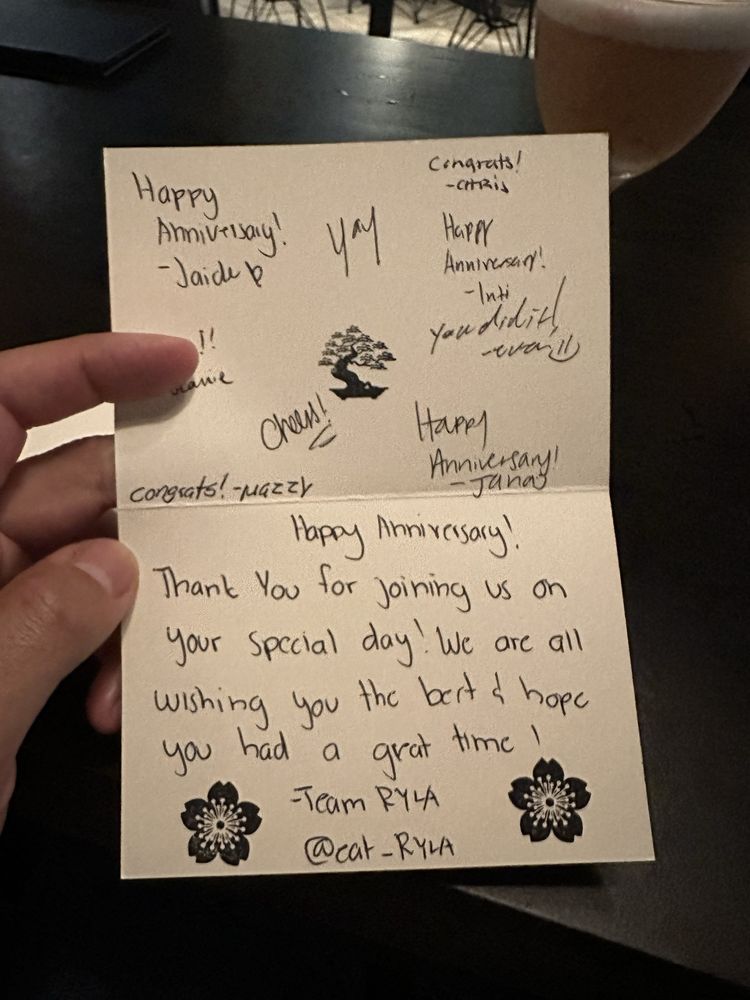 Happy
Anniversary!
-Jaide
Yay
Congrats!
-CHRis
Happy
Anniversary!
-Inti
You did it!
-evan
!!
Cheers!
Happy
Anniversary!
-Janay
congrats! -Mazzy
Happy Anniversary!
Thank You for joining us on
your special day! We are all
wishing you the best & hope
you had a grat time!
-Team RYLA
@eat_RYLA